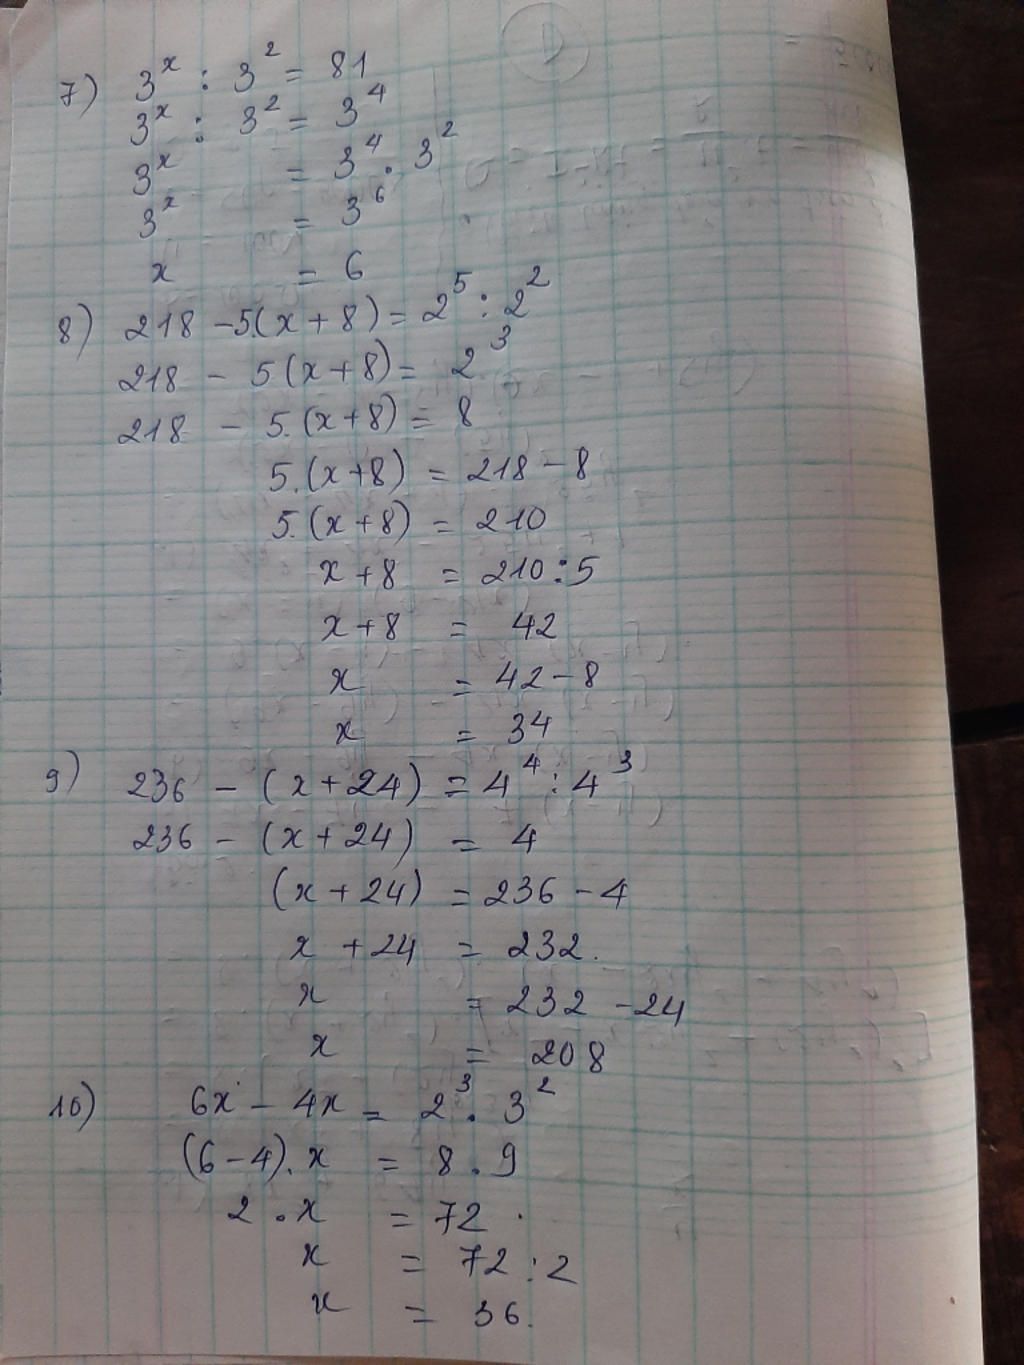 7) 3^x : 3^2 = 81
3^x : 3^2 = 3^4
3^x = 3^4 . 3^2
3^x = 3^6
x = 6
8) 218 - 5.(x + 8) = 2^5 : 2^2
218 - 5(x + 8) = 2^3
218 - 5.(x + 8) = 8
5.(x + 8) = 218 - 8
5.(x + 8) = 210
x + 8 = 210 : 5
x + 8 = 42
x = 42 - 8
x = 34
9) 236 - (x + 24) = 4^4 : 4^3
236 - (x + 24) = 4
(x + 24) = 236 - 4
x + 24 = 232.
x = 232 - 24
x = 208
10) 6x - 4x = 2^3 . 3^2
(6 - 4). x = 8 . 9
2 . x = 72 .
x = 72 : 2
x = 36.